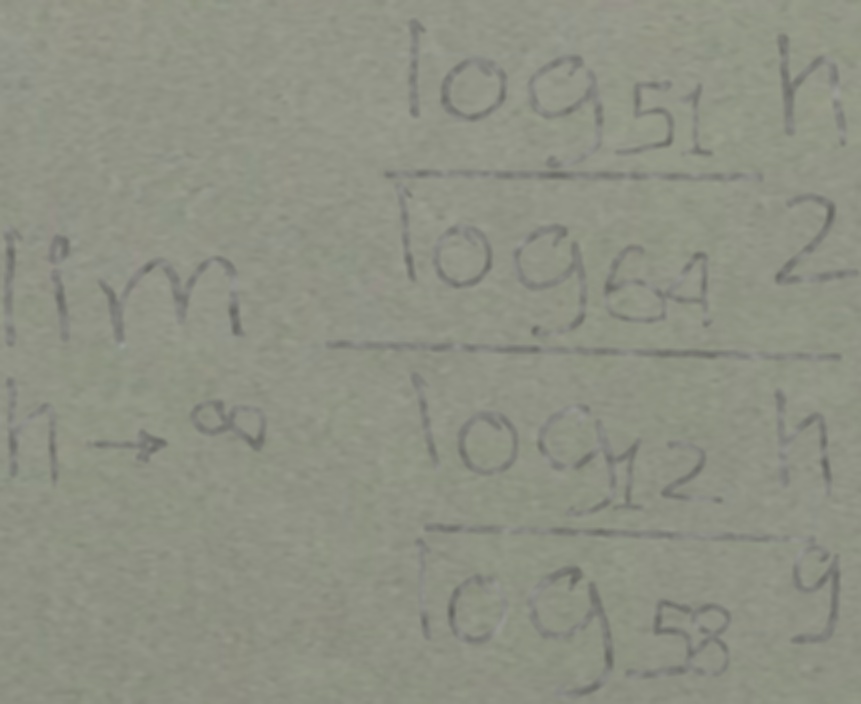 lim h → ∞
log₅₁ h
log₆₄ 2
log₁₂ h
log₅₈ 9